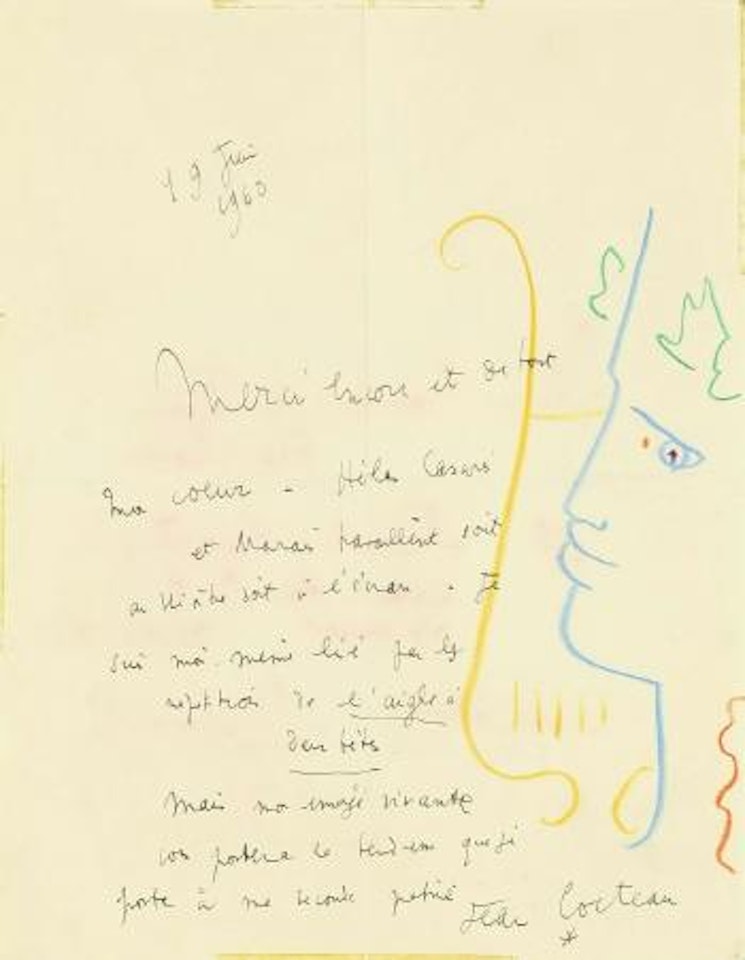 19 Juin
1960
Merci encore et de tout
mon coeur - Hélas Casarès
et Marais travaillent soit
au théâtre soit à l'écran - Je
suis moi-même lié par les
répétitions de l'aigle à
deux têtes
Mais mon envoyé vivante
vous portera la tendresse que je
porte à ma seconde patrie
Jean Cocteau
*